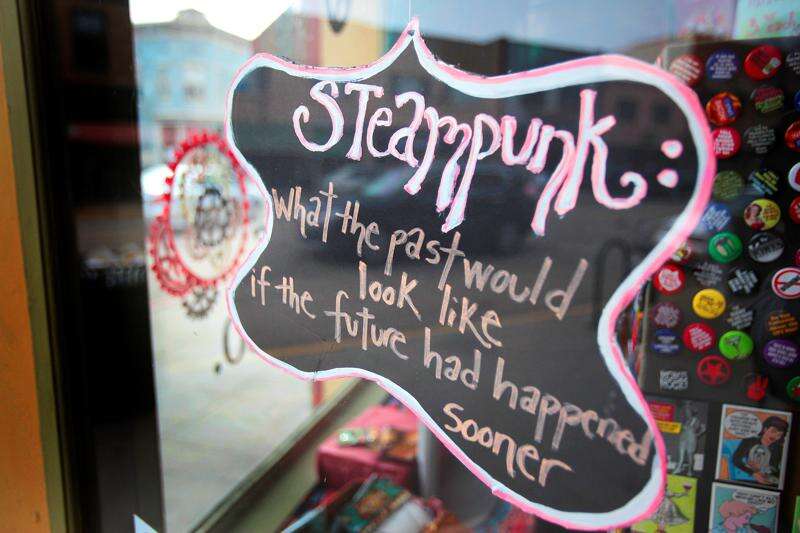 Steampunk:
What the past would
look like
if the future had happened
sooner